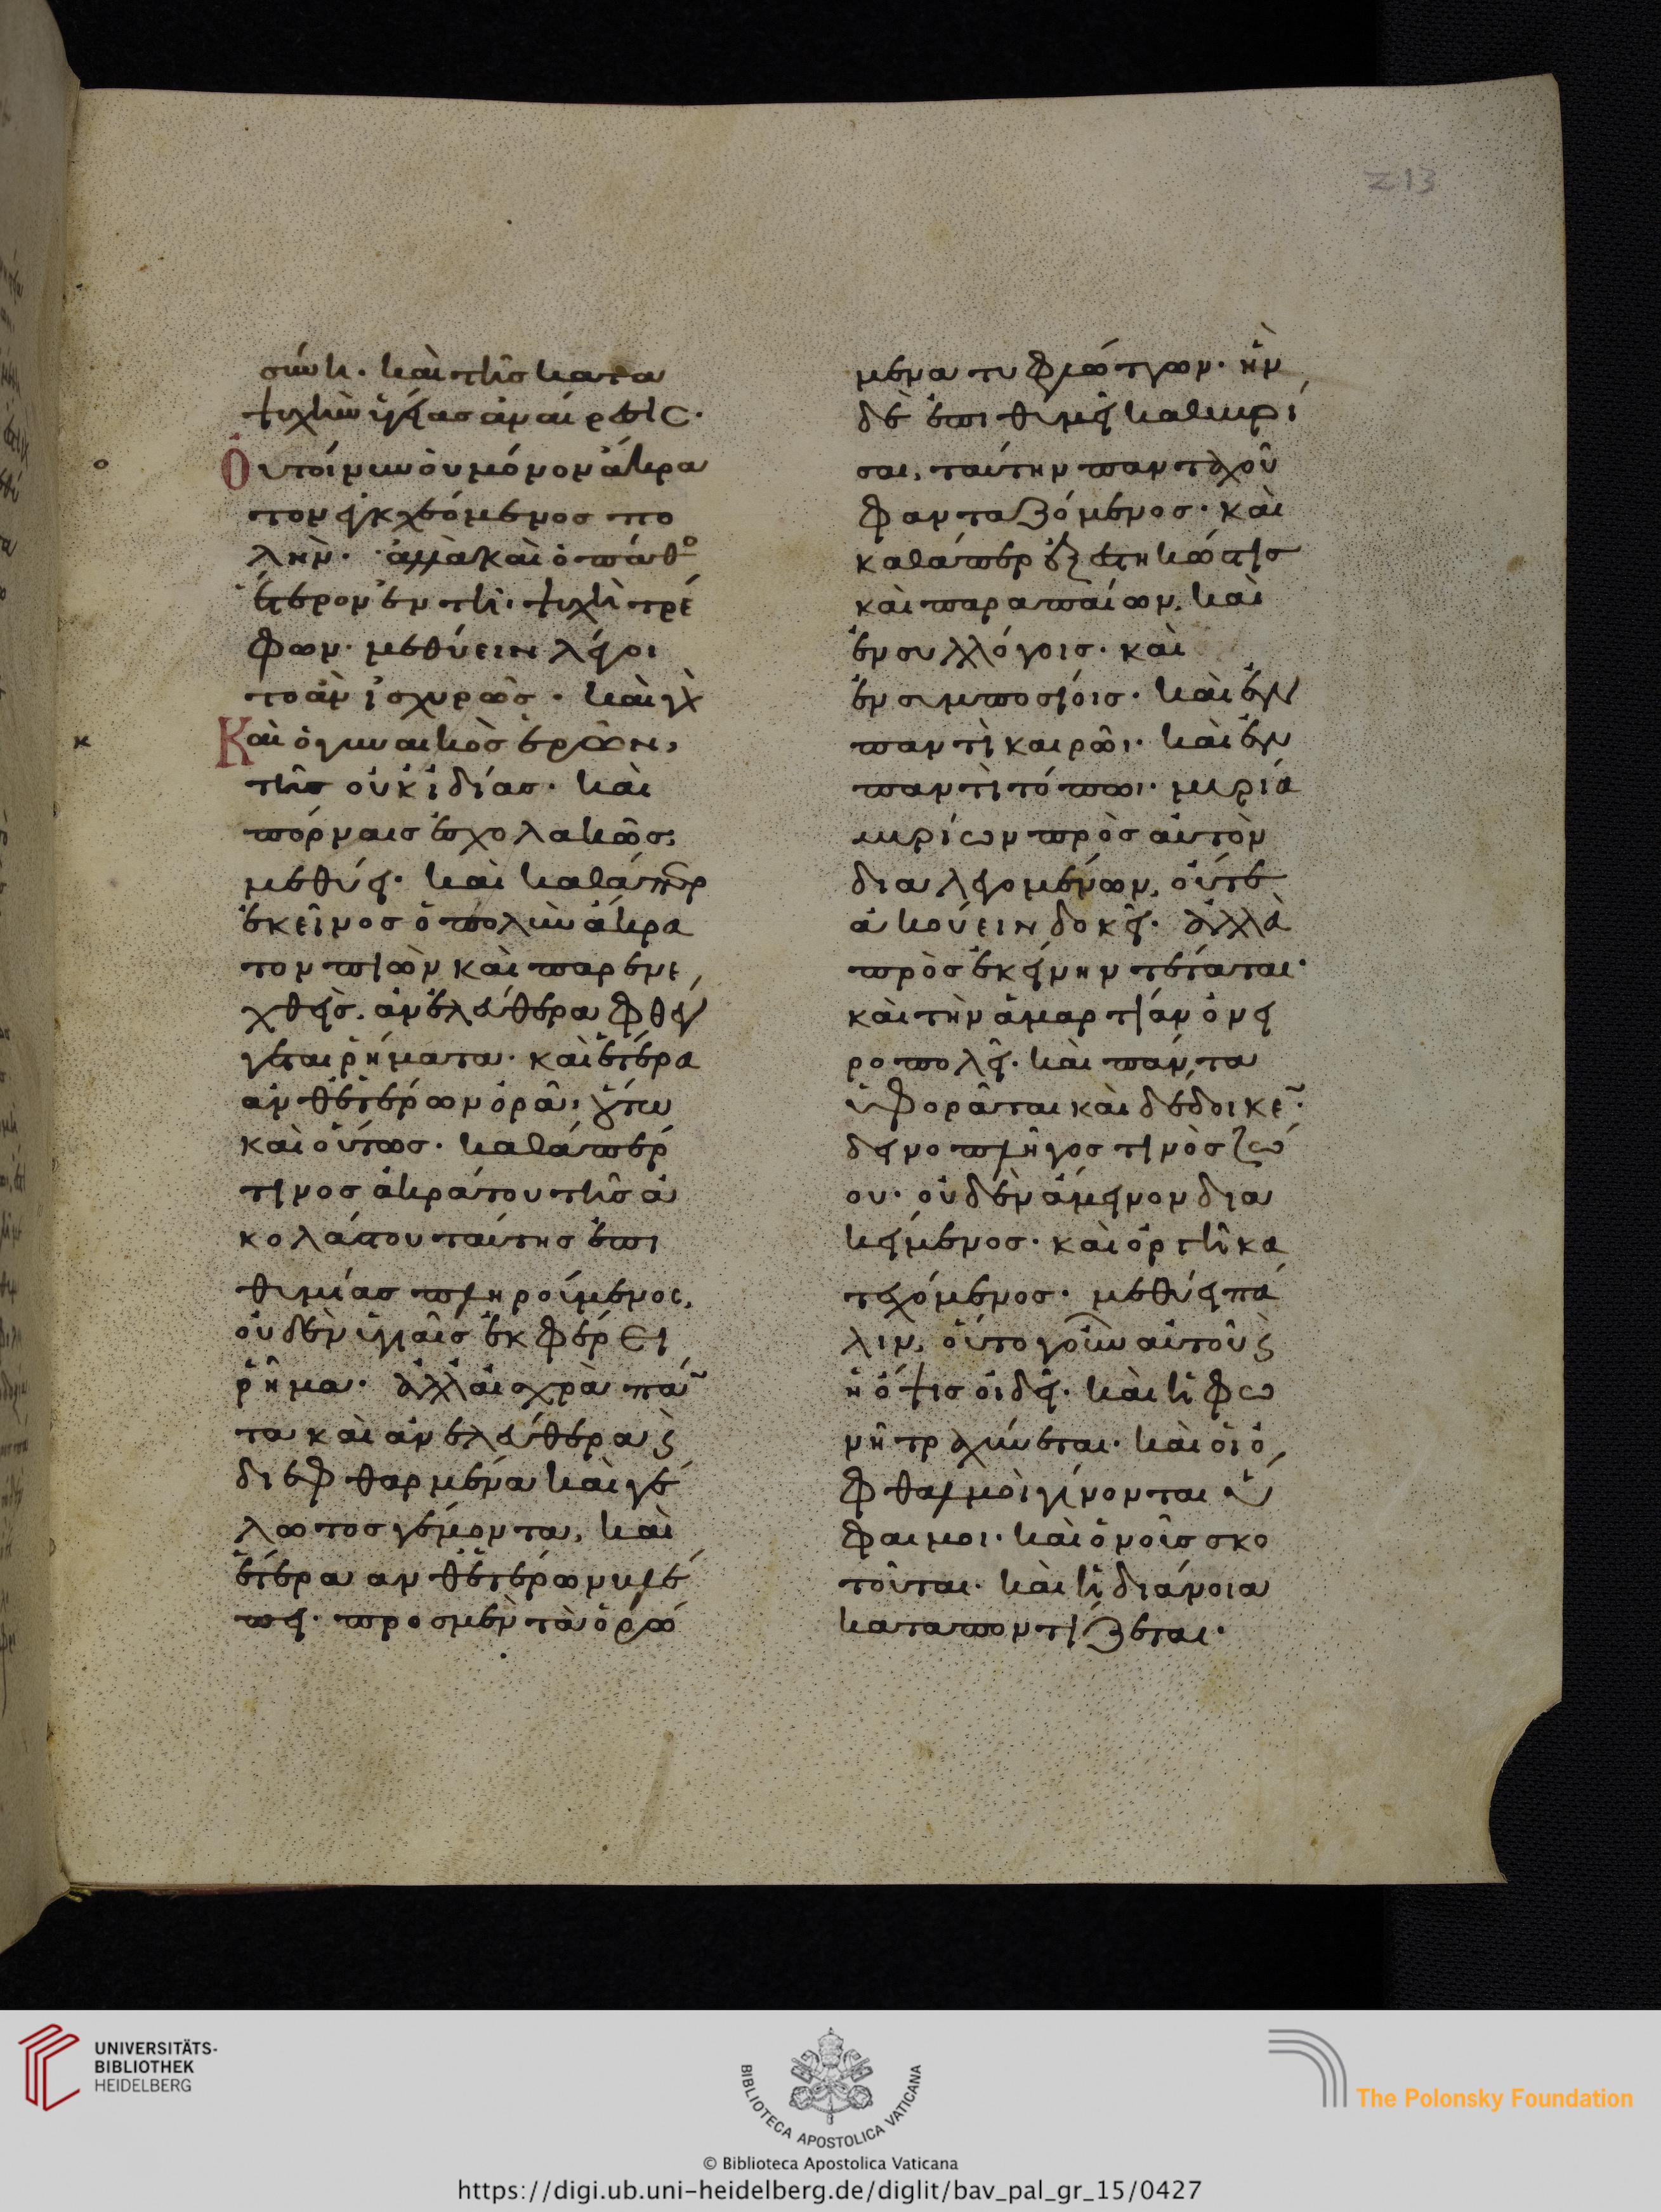 213
σύνη. καὶ τῆς κατα
ψυχὴν ὑγείας ἀναίρεσις.
Ὁυ τοίνυν οὐ μόνον ἄκρα
τον ἐκχεόμενος πο
λὴν. ἀλλὰ καὶ ὁ πάθο
ἕτερον ἐν τῆι ψυχῆ τρέ
φων. μεθύειν λέγοι
το ἂν ἰσχυρῶς. καὶ γὰρ
Καὶ ὁ γυναικὸς ἐρῶν,
τῆς οὐκ ἰδίας. καὶ
πόρναις ἐσχολακὼς,
μεθύει. καὶ καθάπερ
ἐκεῖνος ὁ πολὺν ἄκρα
τον πιὼν καὶ παρενε
χθεὶς. ἀνελεύθερα φθέγ
γεται ῥήματα. καὶ ἕτερα
ἀνθ ἑτέρων ὁρᾶ. οὕτω
καὶ οὗτος. καθάπερ
τινος ἀκράτου τῆς ἀ
κολάστου ταύτης ἐπι
θυμίας πληρούμενος,
οὐδὲν ὑγιαῖς ἐκφέρει
ῥῆμα. ἀλλ' αἰσχρὰ πάν
τα καὶ ἀνελεύθερα καὶ
διεφθαρμένα καὶ γέ
λωτος γέμοντα, καὶ
ἕτερα ἀνθ ἑτέρων βλέ
πει. πρὸς μὲν τὰ ὁρώ
μενα τυφλώττων. ἣν
δὲ ἐπιθυμεῖ καθυβρί
σαι, ταύτην πανταχοῦ
φανταζόμενος. καὶ
καθάπερ ἐξεστηκώς τις
καὶ παραπαίων, καὶ
ἐν συλλόγοις. καὶ
ἐν συμποσίοις. καὶ ἐν
παντὶ καιρῶι. καὶ ἐν
παντὶ τόπωι. μυρία
μυρίων πρὸς αὐτὸν
διαλεγομένων, οὔτε
ἀκούειν δοκεῖ. ἀλλὰ
πρὸς ἐκείνην τέταται.
καὶ τὴν ἁμαρτίαν ὀνει
ροπολεῖ. καὶ πάντα
ὑφορᾶται καὶ δέδοικεν.
δεινοπλῆγος τινὸς ζώ
ου. οὐδὲν ἄμεινον δια
κείμενος. καὶ ὀργῆ κα
τεχόμενος. μεθύει πά
λιν, οὕτω γοῦν αὐτοῦ καὶ
ἡ ὄψις οἰδεῖ. καὶ ἡ φω
νὴ τραχύνεται. καὶ οἱ ὀ
φθαλμοὶ γίνονται ὕ
φαιμοι. καὶ ὁ νοῦς σκο
τοῦται. καὶ ἡ διάνοια
καταποντίζεται.
UNIVERSITÄTS-
BIBLIOTHEK
HEIDELBERG
BIBLIOTECA APOSTOLICA VATICANA
The Polonsky Foundation
© Biblioteca Apostolica Vaticana
https://digi.ub.uni-heidelberg.de/diglit/bav_pal_gr_15/0427